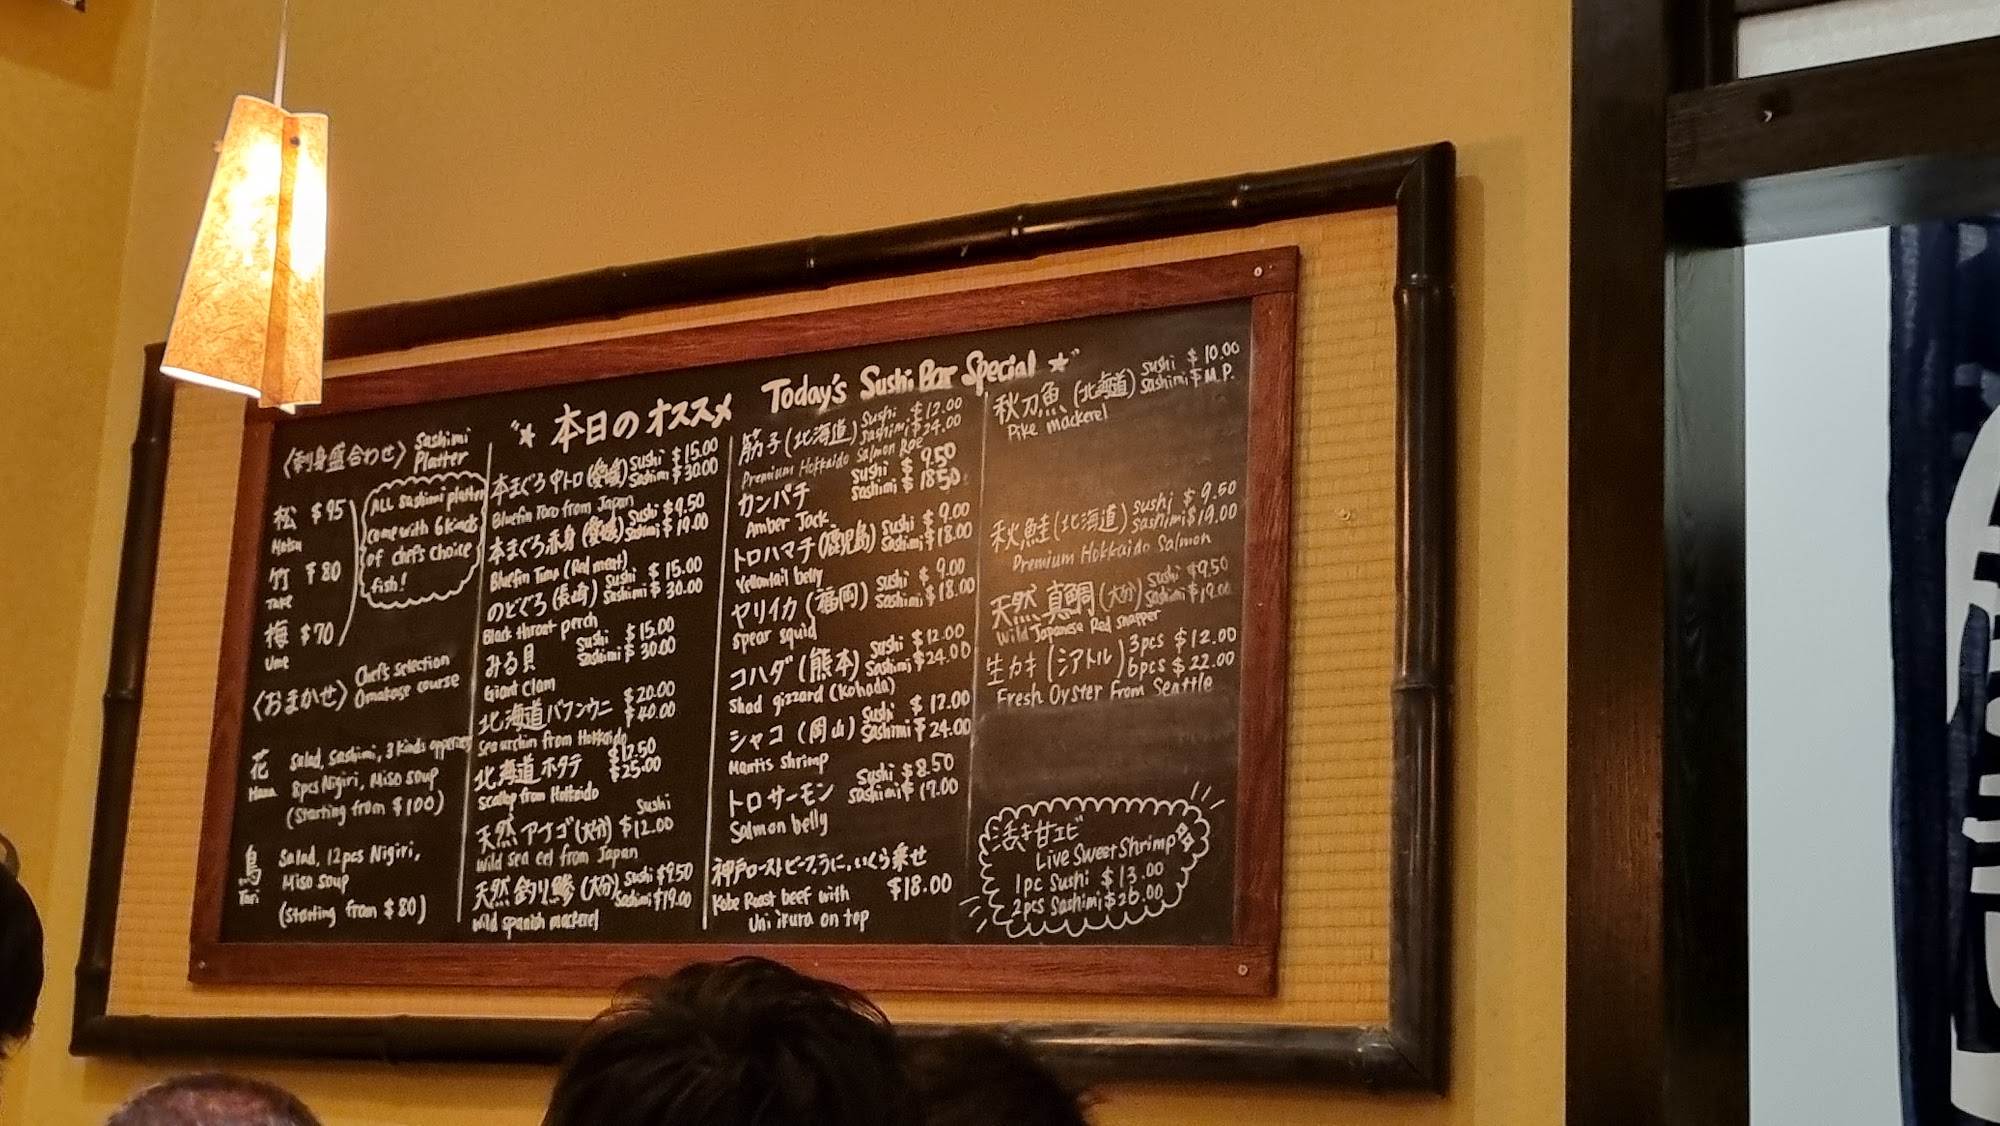 "★ 本日のオススメ Today's Sushi Bar Special ★"
〈刺身盛合わせ〉 Sashimi Platter
松 $95
Matsu
竹 $80
Take
梅 $70
Ume
ALL Sashimi platter
come with 6 kinds
of chef's choice
fish!
〈おまかせ〉 Chef's selection
Omakase course
花 Salad, Sashimi, 3 kinds
Hana 8pcs Nigiri, Miso soup
(Starting from $100)
鳥 Salad, 12pcs Nigiri,
Tori Miso soup
(Starting from $80)
本まぐろ中トロ(愛媛) Sushi $15.00
Sashimi $30.00
Bluefin Toro from Japan
本まぐろ赤身(愛媛) Sushi $9.50
Sashimi $19.00
Bluefin Tuna (Red meat)
のどぐろ(長崎) Sushi $15.00
Sashimi $30.00
Black throat perch
みる貝 Sushi $15.00
Sashimi $30.00
Giant Clam
北海道バフンウニ $20.00
$40.00
Sea urchin from Hokkaido
北海道ホタテ $12.50
$25.00
Scallop from Hokkaido
天然アナゴ(大分) Sushi
$12.00
Wild Sea eel from Japan
天然釣り鯵(大分) Sushi $9.50
Sashimi $19.00
Wild spanish mackerel
筋子(北海道) Sushi $12.00
Sashimi $24.00
Premium Hokkaido Salmon Roe
カンパチ Sushi $9.50
Sashimi $18.50
Amber Jack
トロハマチ(鹿児島) Sushi $9.00
Sashimi $18.00
Yellowtail belly
ヤリイカ(福岡) Sushi $9.00
Sashimi $18.00
Spear squid
コハダ(熊本) Sushi $12.00
Sashimi $24.00
Shad gizzard (Kohada)
シャコ(岡山) Sushi $12.00
Sashimi $24.00
Mantis shrimp
トロサーモン Sushi $8.50
Sashimi $17.00
Salmon belly
神戸ローストビーフ、うに、いくら乗せ
Kobe Roast beef with $18.00
Uni ikura on top
秋刀魚(北海道) Sushi $10.00
Sashimi $M.P.
Pike mackerel
秋鮭(北海道) Sushi $9.50
Sashimi $19.00
Premium Hokkaido Salmon
天然真鯛(大分) Sushi $9.50
Sashimi $19.00
Wild Japanese Red snapper
生カキ(シアトル) 3pcs $12.00
6pcs $22.00
Fresh Oyster from Seattle
活き甘エビ
Live Sweet Shrimp
1pc Sushi $13.00
2pcs Sashimi $26.00